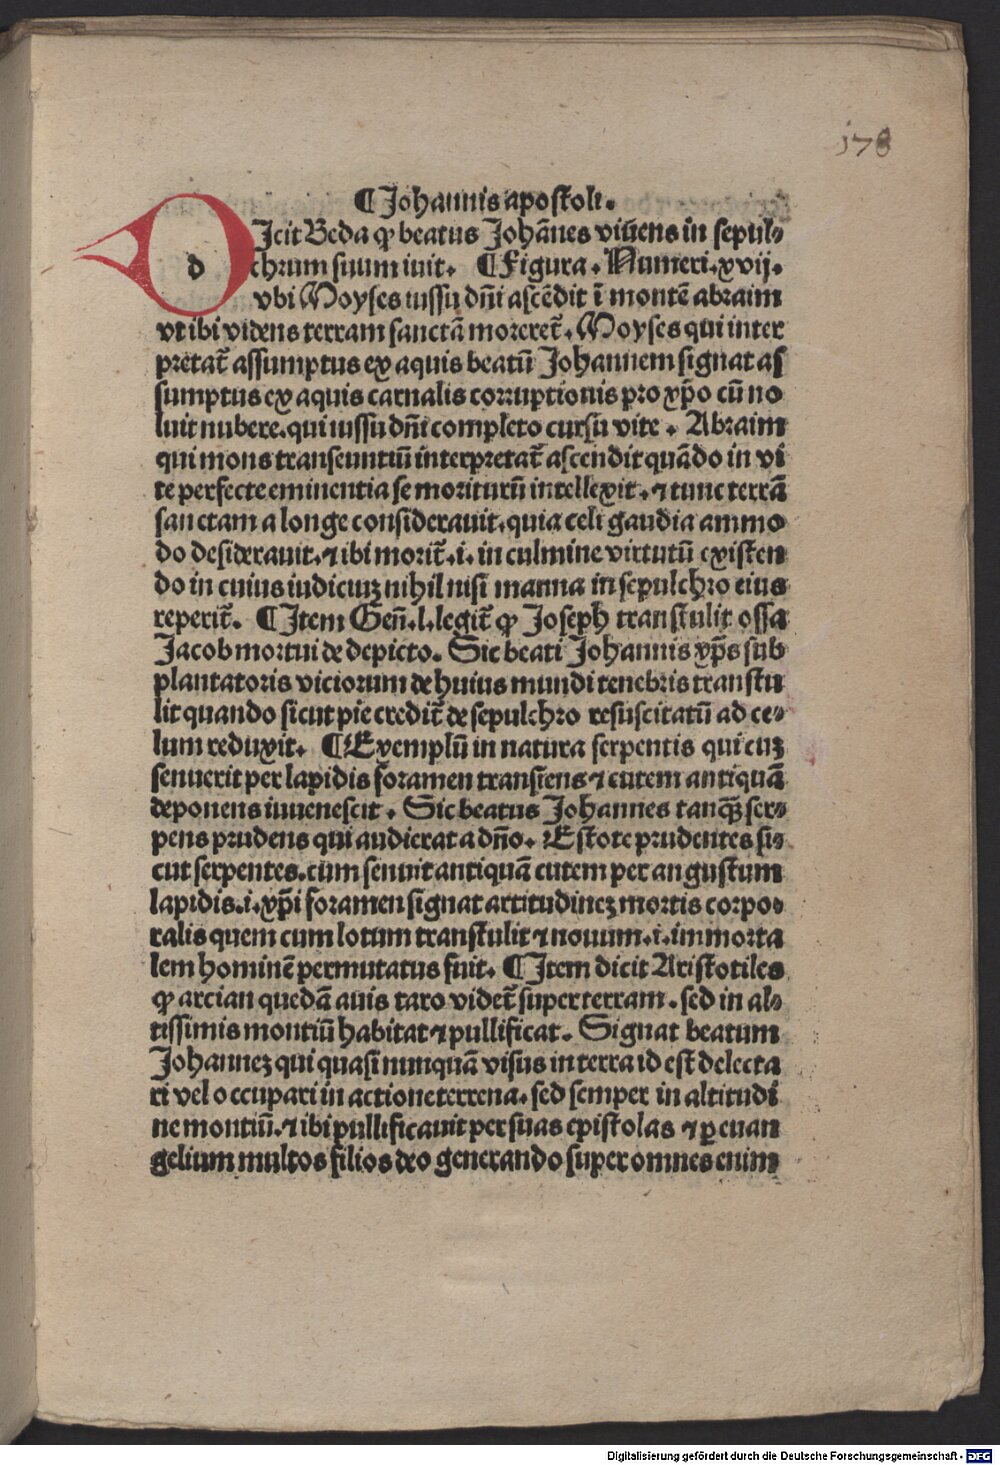 178
¶ Johannis apostoli.
DIcit Beda ꝙ beatus Johānes viuēns in sepul⸗
d chrum suum iuit. ¶ Figura. Numeri. xvij.
vbi Moyses iussu dn̄i ascēdit ī montē abraim
vt ibi videns terram sanctā moreret̄. Moyses qui inter
pretat̄ assumptus ex aquis beatū Johannem signat as
sumptus ex aquis carnalis corruptionis pro xp̄o cū no
luit nubere. qui iussu dn̄i completo cursu vite. Abraim
qui mons transeuntiū interpretat̄ ascendit quādo in vi
te perfecte eminentia se moriturū intellexit. ⁊ tunc terrā
sanctam a longe considerauit. quia celi gaudia ammo
do desiderauit. ⁊ ibi morit̄. i. in culmine virtutū existen
do in cuius iudiciuꝫ nihil nisi manna in sepulchro eius
reperit̄. ¶ Item Gen̄. l. legit̄ ꝙ Joseph transtulit ossa
Jacob mortui de depicto. Sic beati Johannis xp̄s sub
plantatoris viciorum de huius mundi tenebris transtu
lit quando sicut pie credit̄ de sepulchro resuscitatū ad ce⸗
lum reduxit. ¶ Exemplū in natura serpentis qui cuꝫ
senuerit per lapidis foramen transiens ⁊ cutem antiquā
deponens iuuenescit. Sic beatus Johannes tanq̄ꝫ ser⸗
pens prudens qui audierat a dn̄o. Estote prudentes si⸗
cut serpentes. cum senuit antiquā cutem per angustum
lapidis. i. xp̄i foramen signat artitudineꝫ mortis corpo⸗
ralis quem cum lotum transtulit ⁊ nouum. i. immorta
lem hominē permutatus fuit. ¶ Item dicit Aristotiles
ꝙ arcian quedā auis raro videt̄ super terram. sed in al⸗
tissimis montiū habitat ⁊ pullificat. Signat beatum
Johanneꝫ qui quasi nunquā visus in terra id est delecta
ri vel occupari in actione terrena. sed semper in altitudi
ne montiū. ⁊ ibi pullificauit per suas epistolas ⁊ ꝑ euan
gelium multos filios deo generando super omnes enim
Digitalisierung gefördert durch die Deutsche Forschungsgemeinschaft - DFG